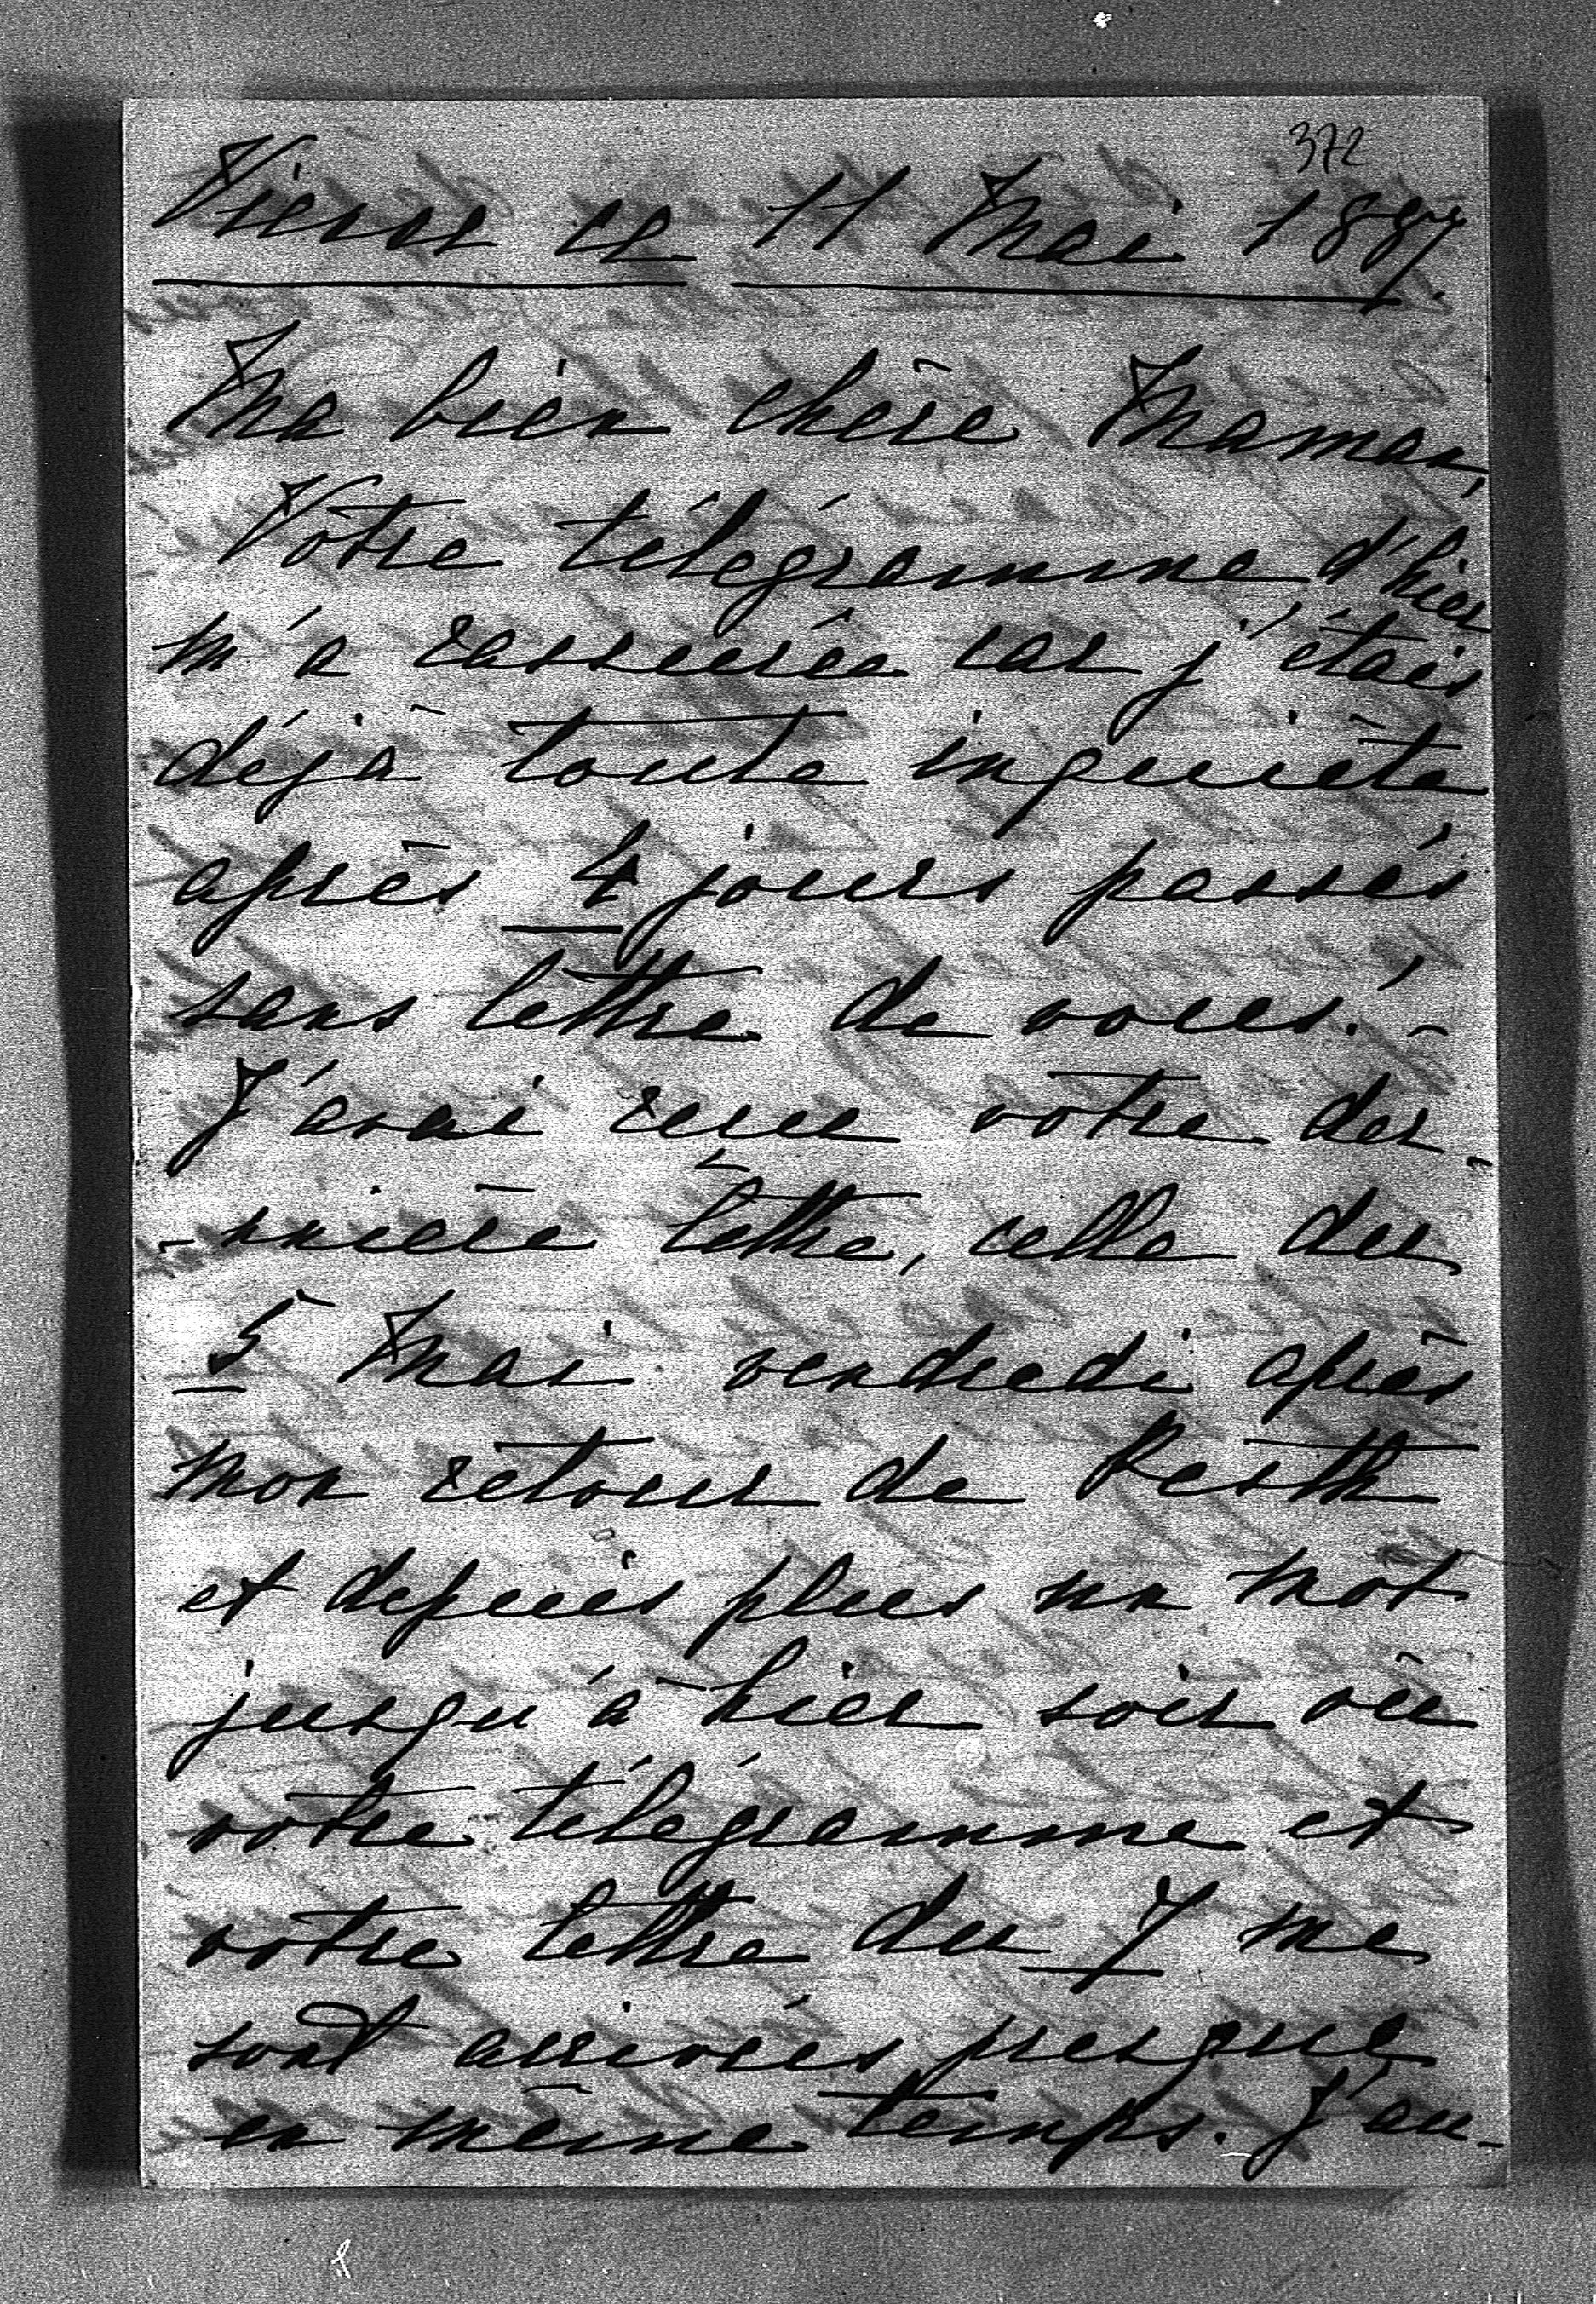 372
Vienne ce 11 Mai 1887.
Ma bien chère Maman,
Votre télégramme d'hier
m'a rassurée car j'étais
déjà toute inquiète
après 4 jours passés
sans lettre de vous. -
J'avai reçu votre der-
-nière lettre, celle du
5 Mai vendredi après
mon retour de Pesth
et depuis plus un mot
jusqu'à hier soir où
votre télégramme et
votre lettre du 7 me
sont arrivés presque
en même temps. J'au-